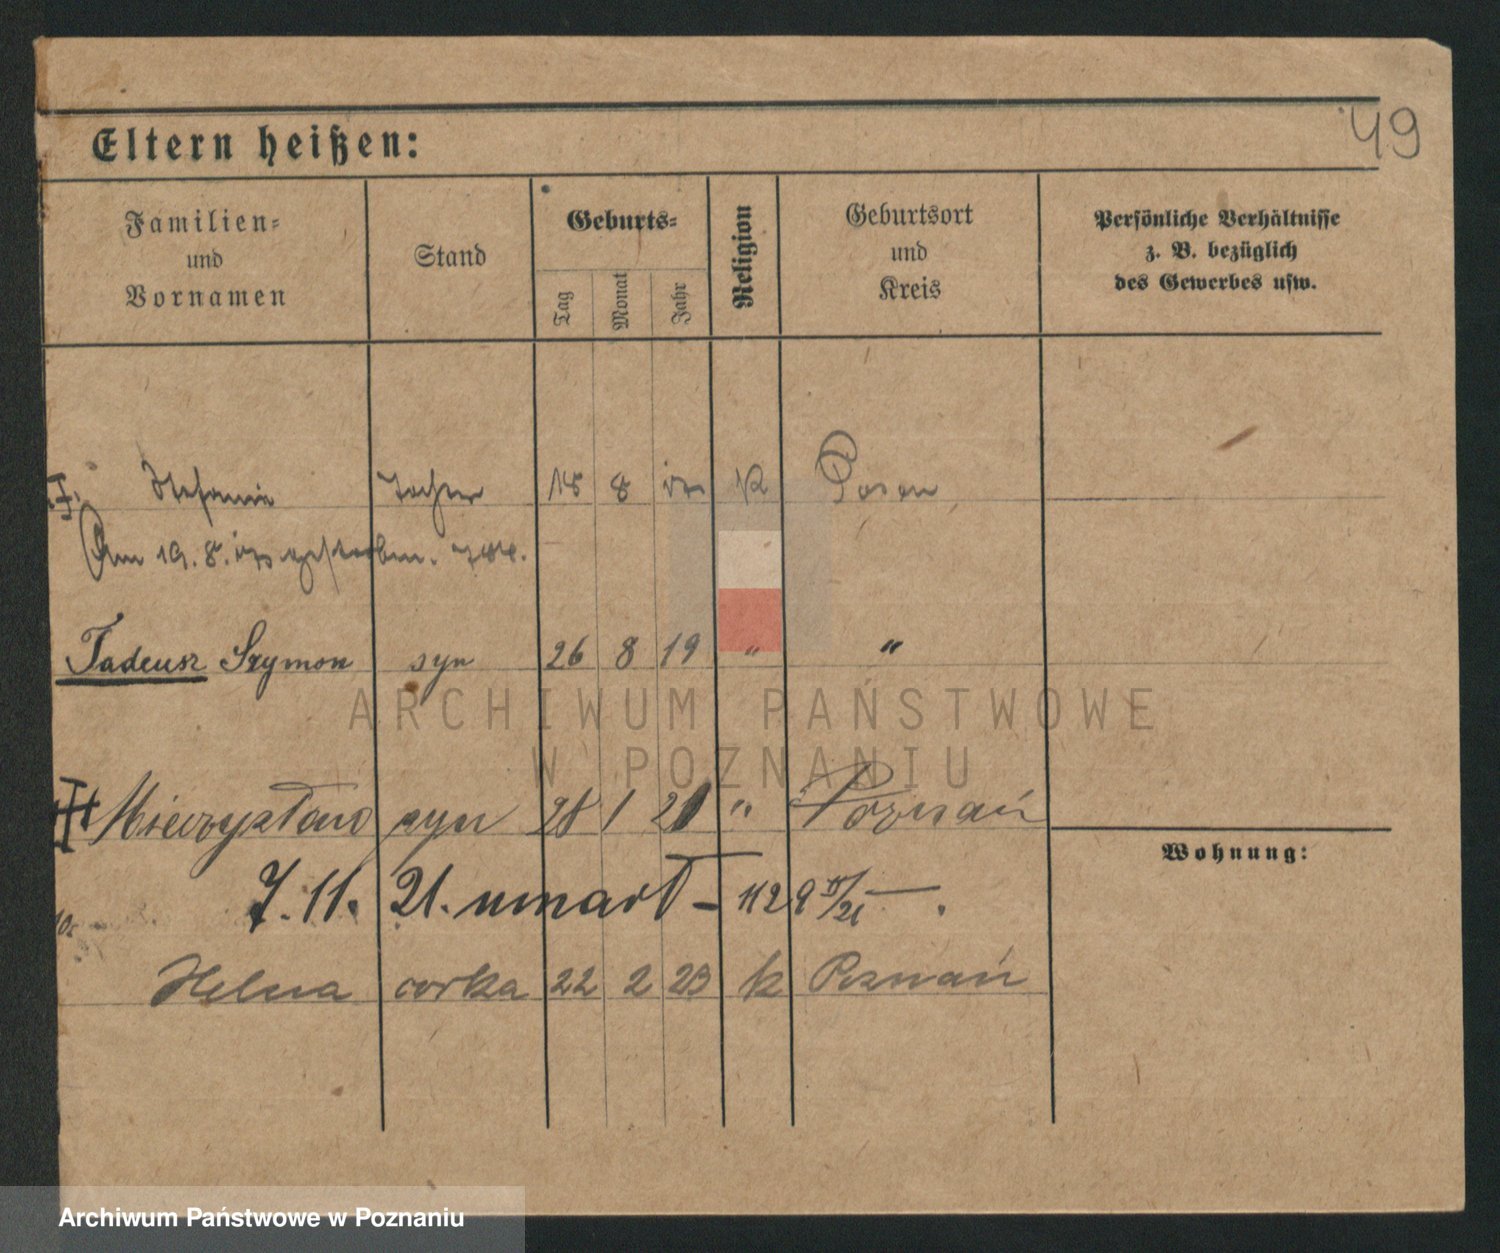 49
Eltern heißen:
Familien-
und
Vornamen
Stand
Geburts-
Tag
Monat
Jahr
Religion
Geburtsort
und
Kreis
Persönliche Verhältnisse
z. B. bezüglich
des Gewerbes usw.
Stefanie Tochter 18 8 K Posen
Am 19. 8. gestorben.
Tadeusz Szymon syn 26 8 19 " "
Mieczysław syn 28 1 21 " Poznań
7. 11. 21. umarł – 1129
Wohnung:
Helena corka 22 2 23 k Poznań
ARCHIWUM PAŃSTWOWE
W POZNANIU
Archiwum Państwowe w Poznaniu